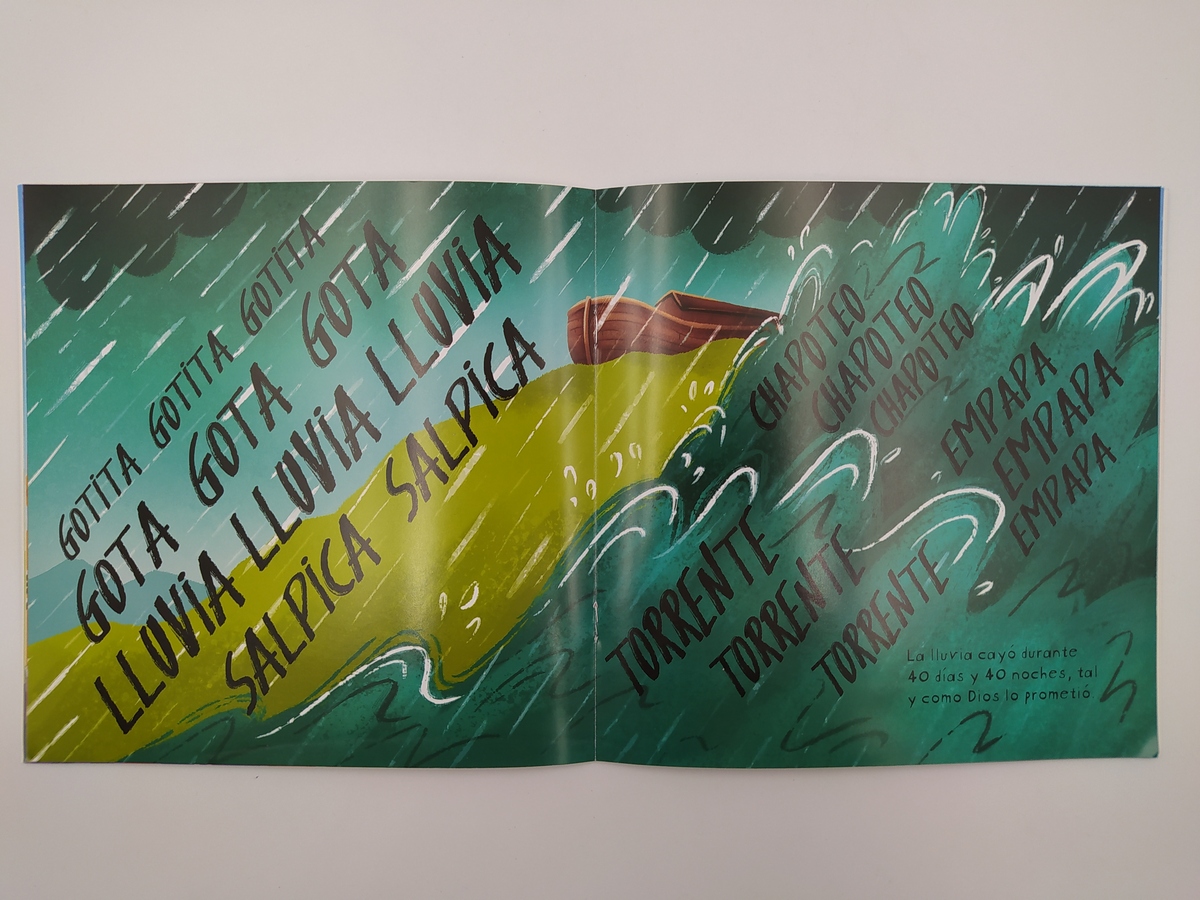 GOTITA GOTITA GOTITA
GOTA GOTA GOTA
LLUVIA LLUVIA LLUVIA
SALPICA SALPICA
CHAPOTEO
CHAPOTEO
CHAPOTEO
EMPAPA
EMPAPA
EMPAPA
TORRENTE
TORRENTE
TORRENTE
La lluvia cayó durante
40 días y 40 noches, tal
y como Dios lo prometió